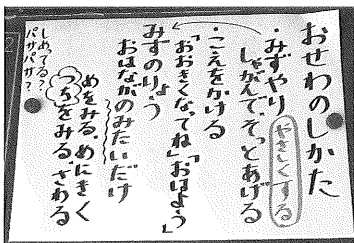 おせわのしかた
・みずやり やさしくする
しゃがんで、そっとあげる
・こえをかける
「おおきくなってね」「おはよう」
みずのりょう
おはながのみたいだけ
めをみる。めにきく
つちをみる、さわる
しめってる?
パサパサ?